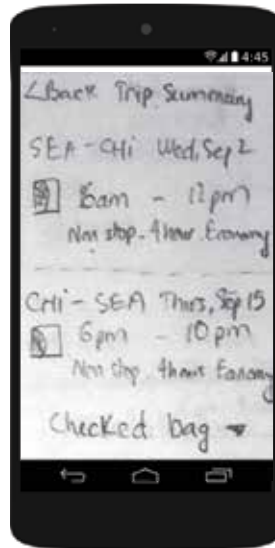 4:45
<Back Trip Summary
SEA - CHi Wed, Sep 2
8am - 12pm
Non stop - 4 hour Economy
CHi - SEA Thurs, Sep 15
6pm - 10pm
Non stop - 4 hour Economy
Checked bag